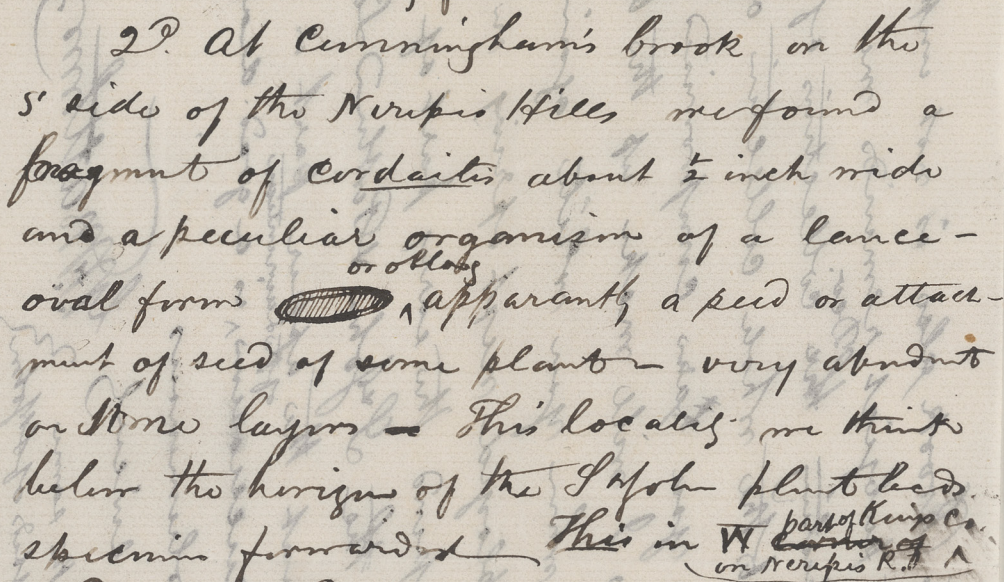 2º. At Cunningham's brook on the
S' side of the Neripis Hills we found a
fragment of cordaites about ½ inch wide
and a peculiar organism of a lance-
or oblong
oval form ^ apparantly a seed or attach-
ment of seed of some plant – very abundnt
on some layers – This locality we think
below the horizon of the St John plant beds.
specimens forwarded This in W part of Kings Co.
on Neripis R. ^